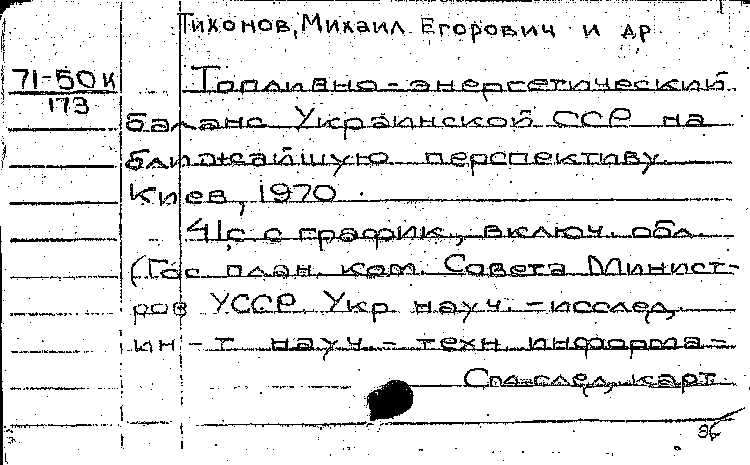 Тихонов, Михаил Егорович и др
71-50к
173
Топливно-энергетический
баланс Украинской ССР на
ближайшую перспективу.
Киев, 1970.
41с с график., включ. обл.
(Гос план. ком. Совета Минист-
ров УССР. Укр науч.-исслед.
ин-т науч.- техн. информа-
См след. карт.